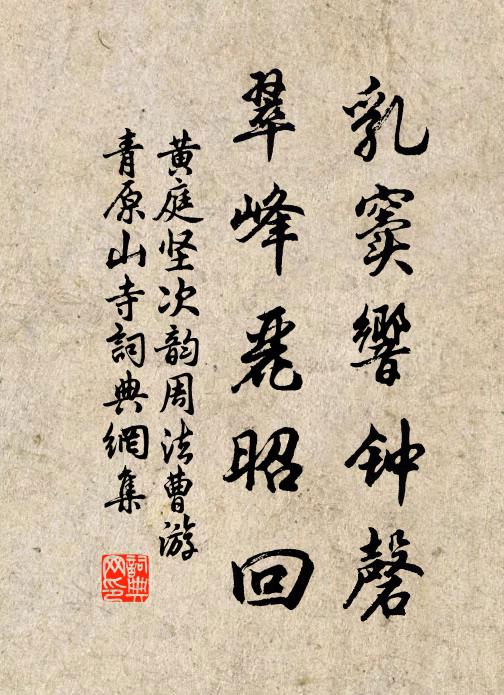 乳窦響钟磬
翠峰麗昭回
黄庭坚次韵周法曹游
青原山寺詞典網集
詞典网印